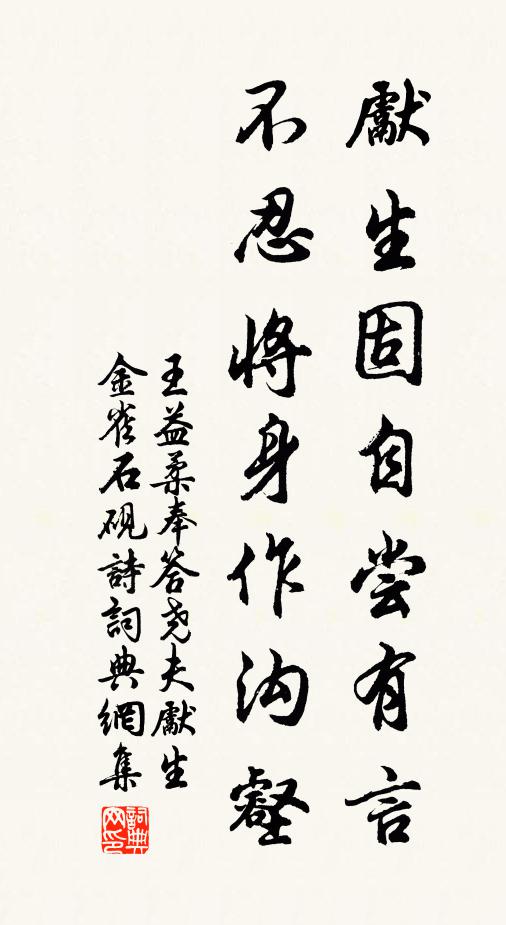 獻生固自尝有言
不忍將身作沟壑
王益柔奉答尧夫獻生
金雀石砚詩詞典網集
詞典
网印